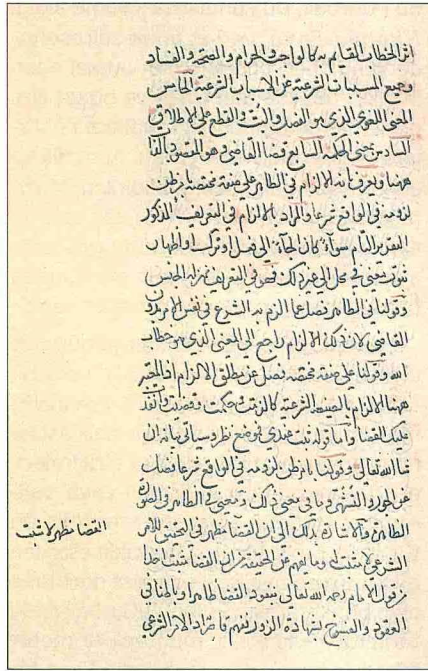 اثر الخطاب القايم به كالواجب والحرام والصحة والفساد
وجميع المسببات الشرعية عن الاسباب الشرعية الخامس
المعنى اللغوي الذي هو الفصل والبت والقطع على الاطلاق
السادس بمعنى الحكمة السابع قضا القاضي هو المقصود بالقا
ههنا ويعرف بانه الالزام في الظاهر على صيغة مختصة بامر ظن
لزومه في الواقع شرعا والمراد بالالزام في التعريف المذكور
التقرير التام سوآء كان الجآءه الى فعل او ترك او
ثبوت معنى في محل الى غير ذلك فهو في التعريف بمنزلة الجنس
وقولنا في الظاهر فصل عما الزم به الشرع في نفس الامر بدون
القاضي لان ذلك الالزام راجع الى المعنى الذي هو خطاب
الله وقولنا على صيغة مختصة فصل عن مطلق الالزام اذ المعتبر
ههنا الالزام بالصيغة الشرعية كالزمت وحكمت وقضيت وانفذ
عليك القضا واما قوله ثبت عندي فموضع نظر وسياتي بيانه ان
شآ الله تعالى وقولنا بامر ظن لزومه في الواقع شرعا فصل
عن الجور والتشهي وياتي معنى ذلك ومعنى في الظاهر والصورة
الظاهرة والاشارة بذلك الى ان القضا مظهر في التحقيق للامر
الشرعي لا مثبت وما يفهم عن الحنفية من ان القضا مثبت اخذا
من قول الامام رحمه الله تعالى بنفوذ القضا ظاهرا وباطنا في
العقود والفسوخ بشهادة الزور لفهم الامر الشرعي
القضا مظهر لا مثبت